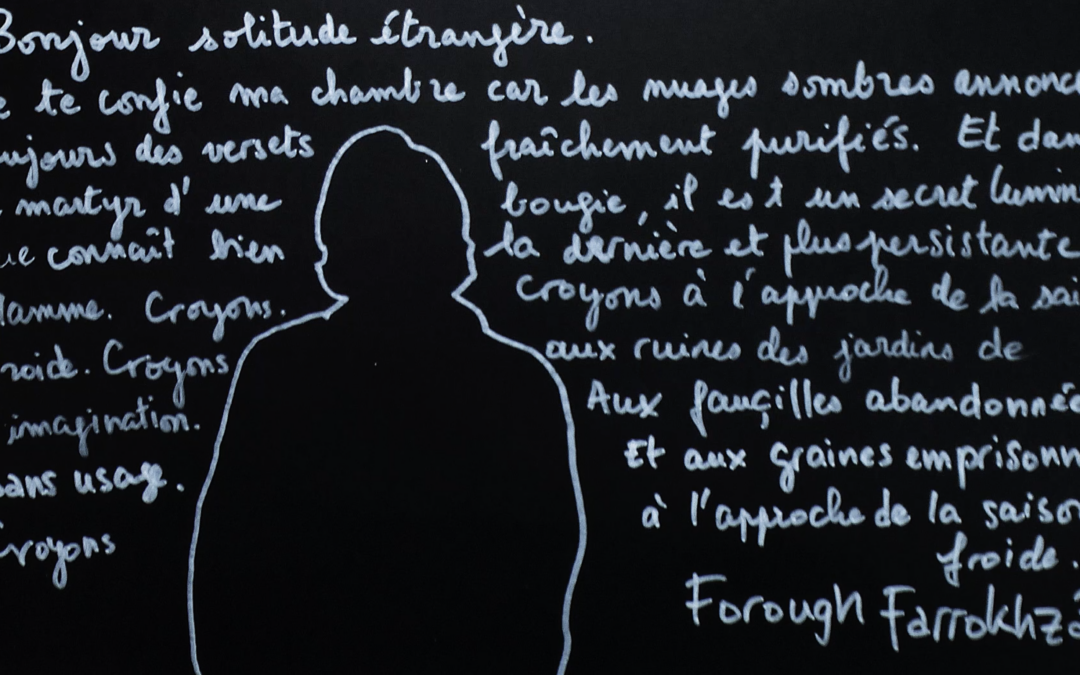 Bonjour solitude étrangère.
e te confie ma chambre car les nuages sombres annonce
ujours des versets fraîchement purifiés. Et dan
martyr d'une bougie, il est un secret lumin
ue connaît bien la dernière et plus persistante
lamme. Croyons. Croyons à l'approche de la sai
roide. Croyons aux ruines des jardins de
imagination. Aux fauçilles abandonnée
sans usage. Et aux graines emprisonn
Croyons à l'approche de la saiso
froide.
Forough Farrokhza